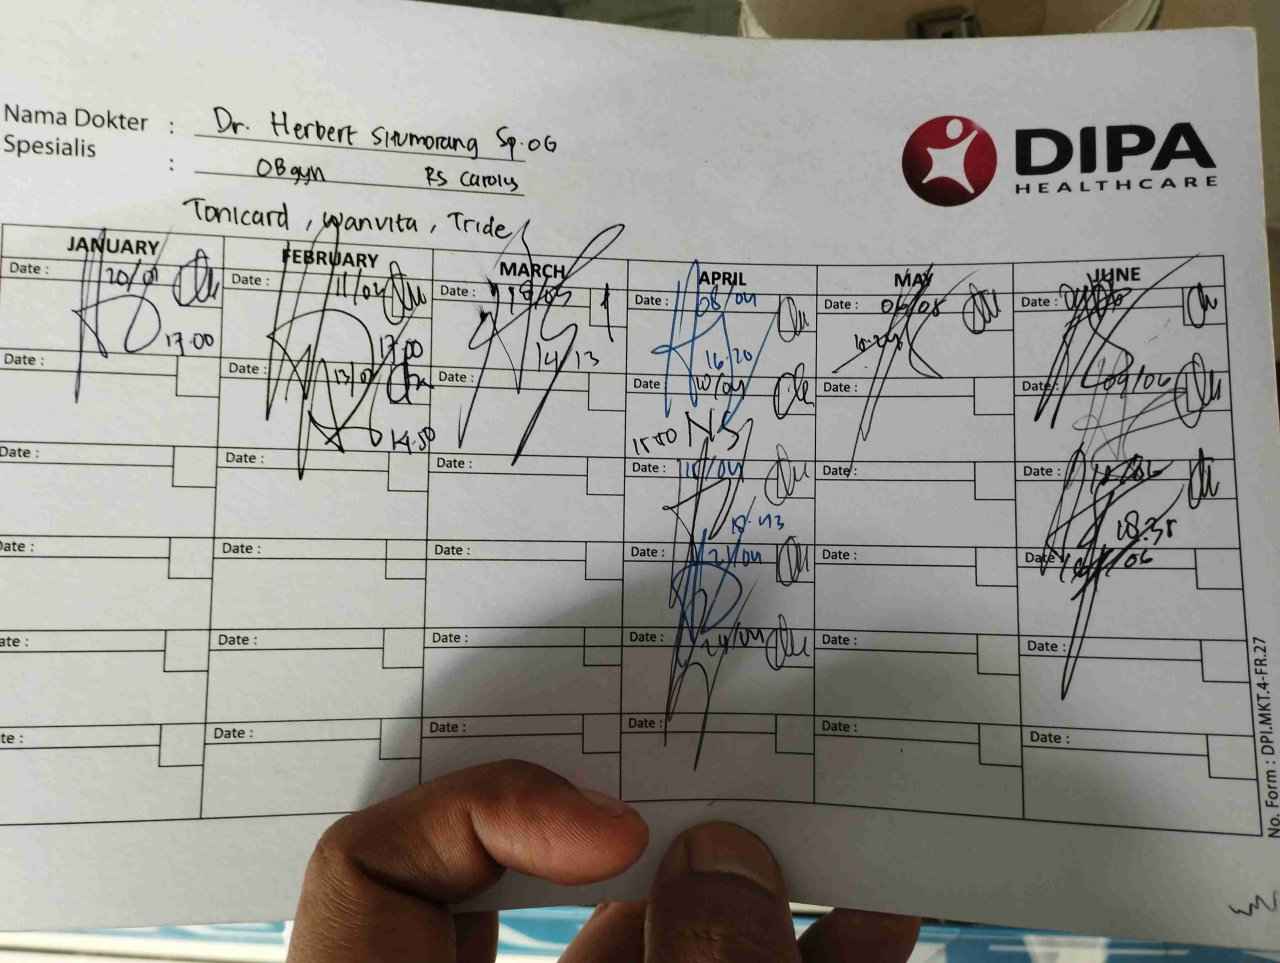 Nama Dokter : Dr. Herbert Situmorang Sp.OG
Spesialis : OBgyn RS Carolus
DIPA
HEALTHCARE
Tonicard, Wanvita, Tride
JANUARY FEBRUARY MARCH APRIL MAY JUNE
Date : 20/01 Date : 11/02 Date : 18/03 Date : 08/04 Date : 06/05 Date :
17.00 17.00 14 13 16.20
Date : Date : 13/02 Date : Date : 10/04 Date : Date : 09/06
14.50 NS
Date : Date : Date : Date : Date : Date :
18.43 18.35
Date : Date : Date : Date : 21/04 Date : Date :
ate : Date : Date : Date : 24/04 Date : Date :
te : Date : Date : Date : Date : Date :
No. Form : DPI.MKT.4-FR.27